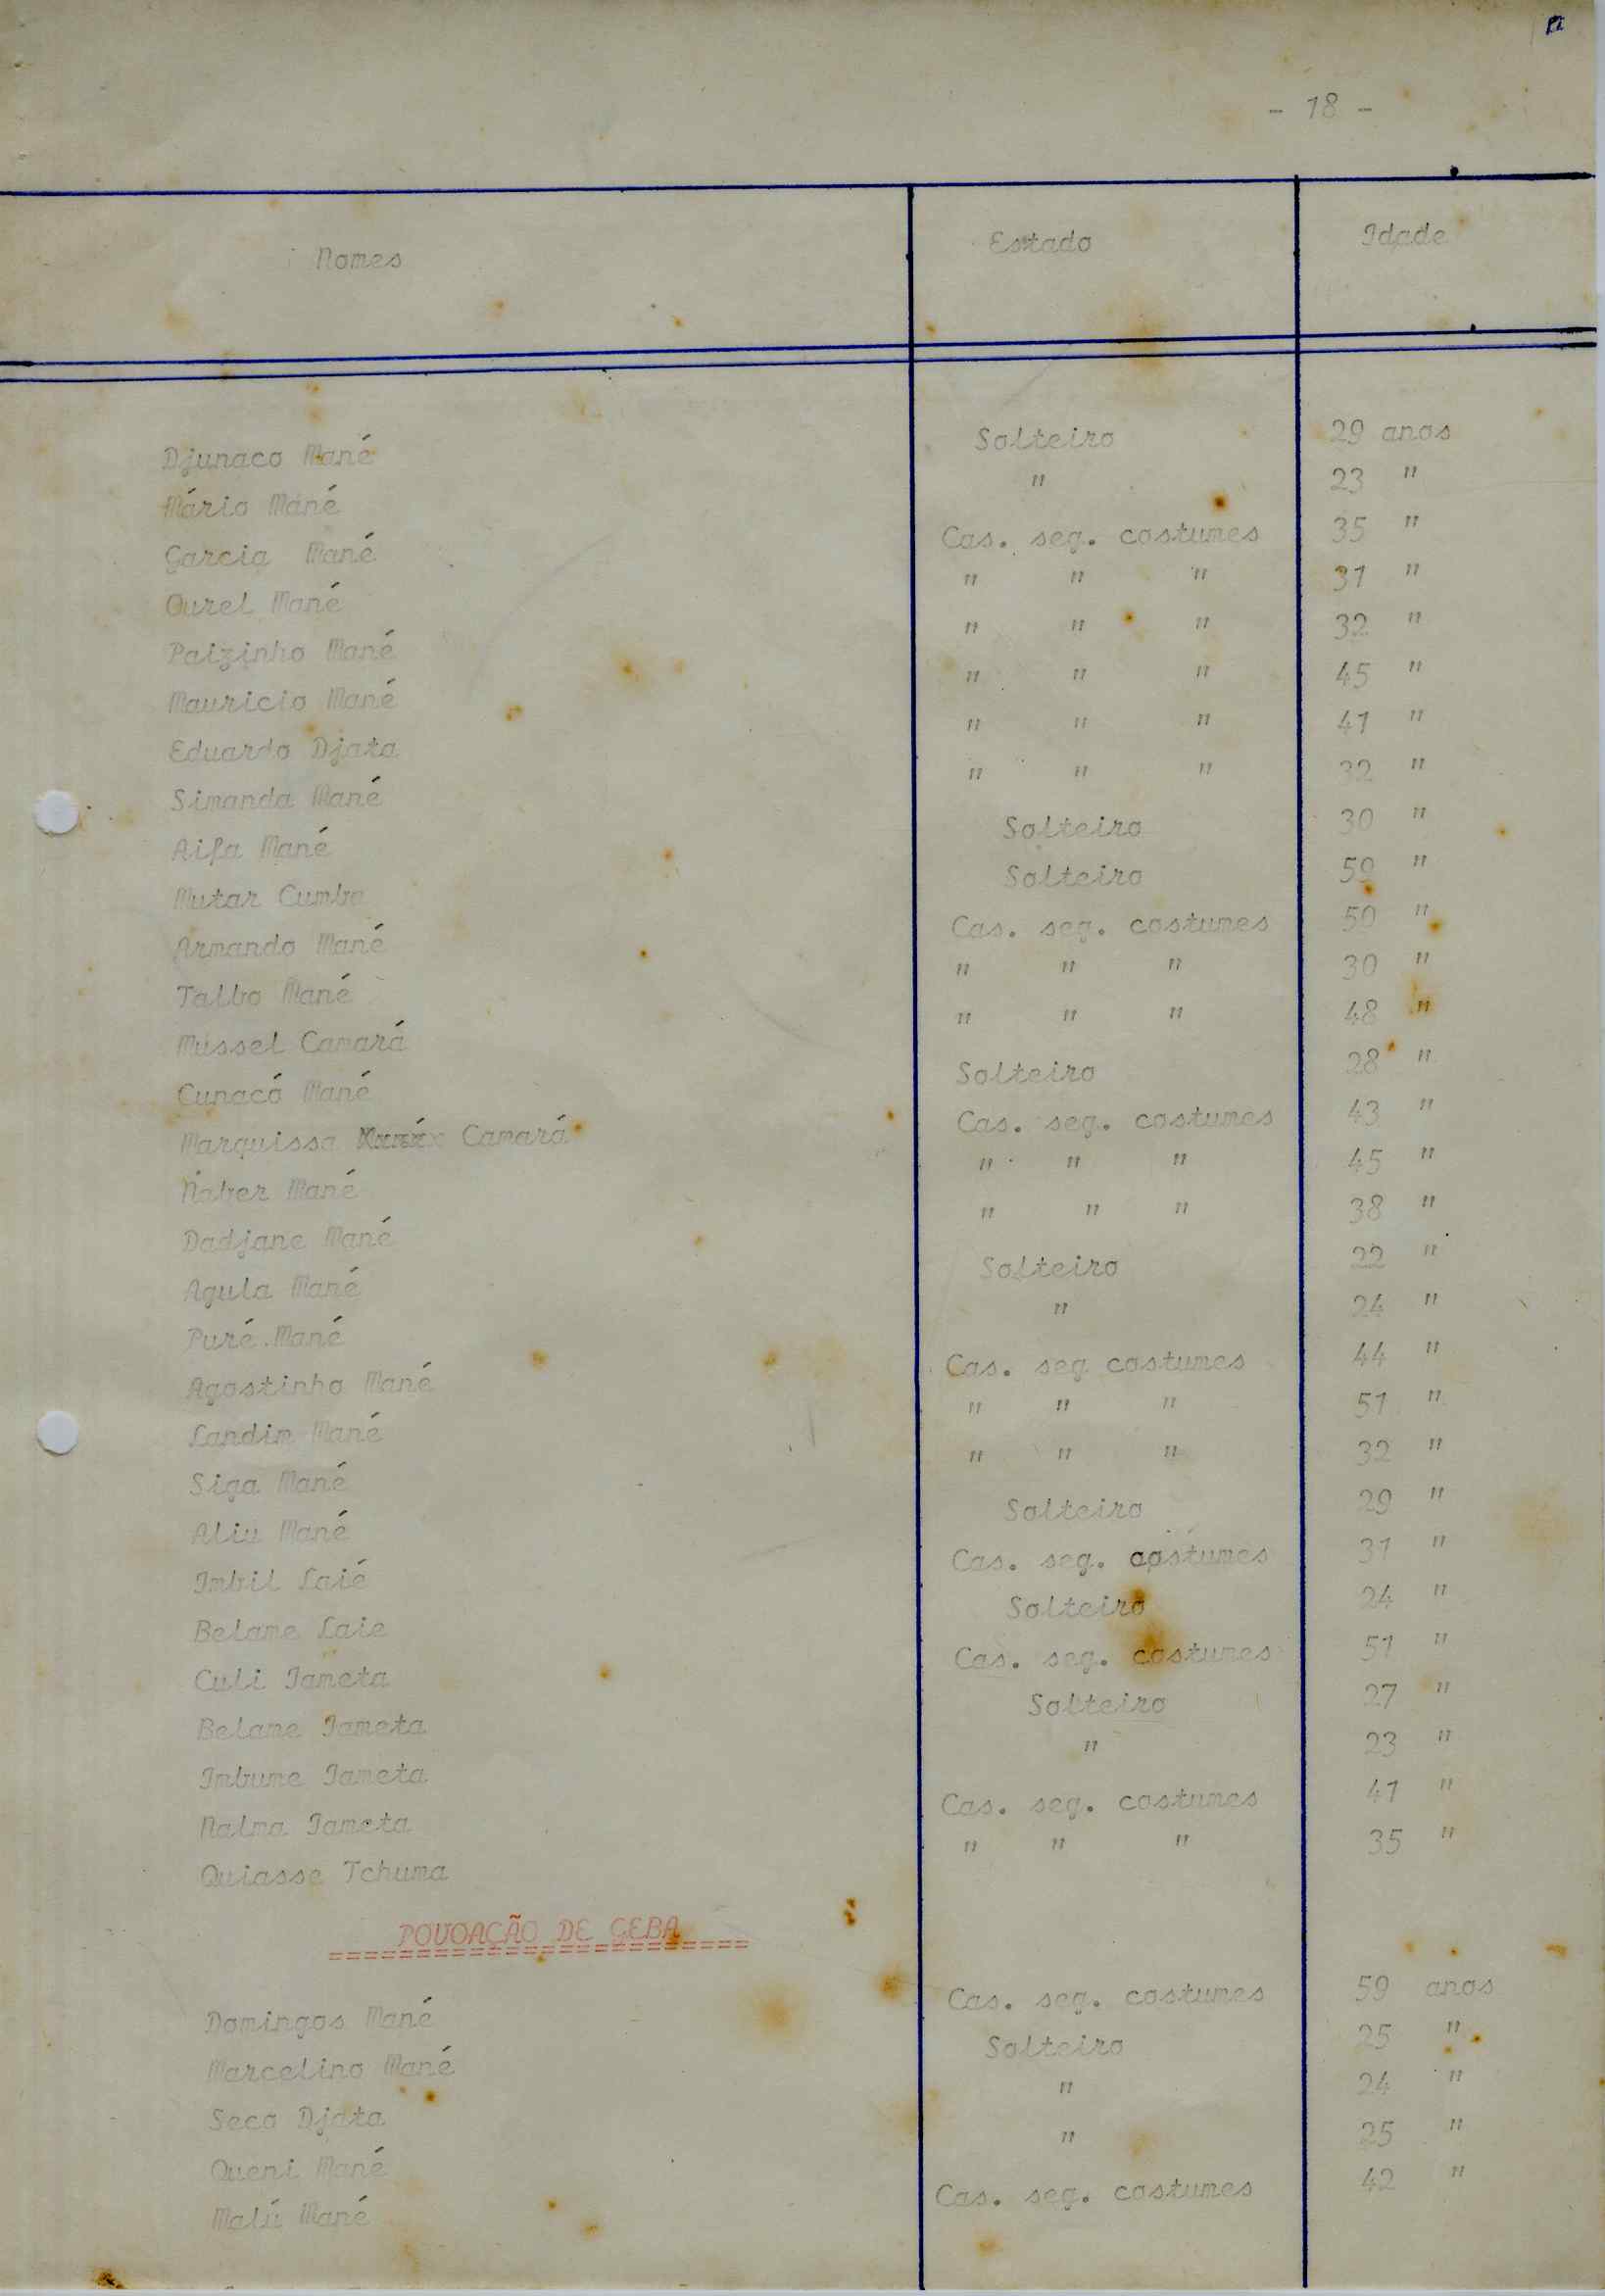 - 18 -
Nomes Estado Idade
Djunaco Mané Solteiro 29 anos
Mário Mané " 23 "
Garcia Mané Cas. seg. costumes 35 "
Ourel Mané " " " 31 "
Paizinho Mané " " " 32 "
Mauricio Mané " " " 45 "
Eduardo Djata " " " 41 "
Simanda Mané " " " 32 "
Aifa Mané Solteiro 30 "
Mutar Cumba Solteiro 59 "
Armando Mané Cas. seg. costumes 50 "
Talbo Mané " " " 30 "
Mussel Camará " " " 48 "
Cunacó Mané Solteiro 28 "
Marquissa Camará Cas. seg. costumes 43 "
Naber Mané " " " 45 "
Dadjane Mané " " " 38 "
Agula Mané Solteiro 22 "
Puré Mané " 24 "
Agostinho Mané Cas. seg costumes 44 "
Landim Mané " " " 51 "
Siga Mané " " " 32 "
Aliu Mané Solteiro 29 "
Imbil Laié Cas. seg. costumes 31 "
Belame Laie Solteiro 24 "
Culi Iameta Cas. seg. costumes 51 "
Belame Iameta Solteiro 27 "
Imbume Iameta " 23 "
Nalma Iameta Cas. seg. costumes 41 "
Quiasse Tchuma " " " 35 "
POVOAÇÃO DE GEBA
Domingos Mané Cas. seg. costumes 59 anos
Marcelino Mané Solteiro 25 "
Seco Djata " 24 "
Queni Mané " 25 "
Malú Mané Cas. seg. costumes 42 "